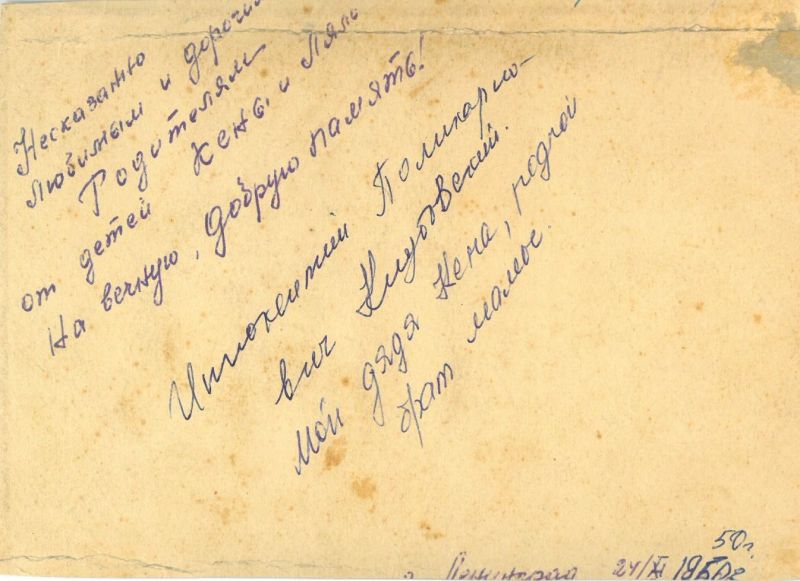 Несказанно
Любимым и дорогим
Родителям
от детей Кены и Ляли
На вечную, добрую память!
Иннокентий Поликарпо-
вич
Мой дядя Кена, родной
брат мамы.
50г.
г. Ленинград 24/XI 1950г